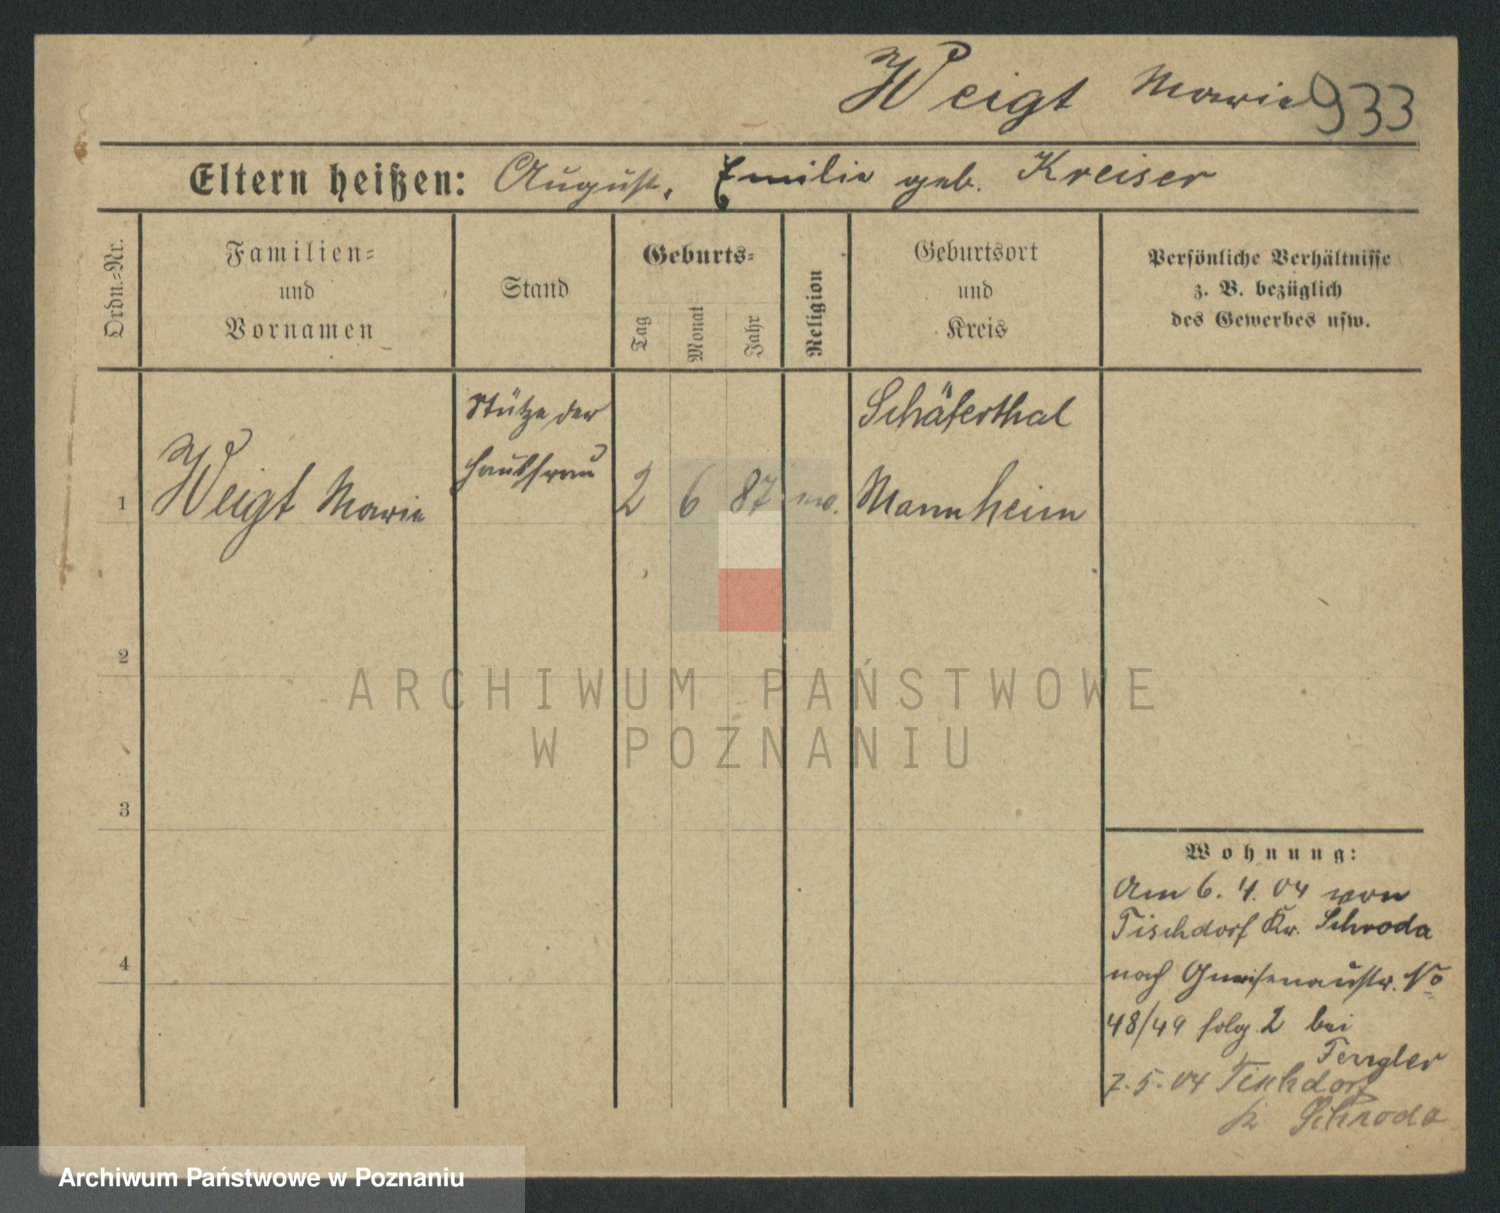 Weigt Marie 933
Eltern heißen: August, Emilie geb. Kreiser
Ordn.-Nr.
Familien-
und
Vornamen
Stand
Geburts-
Tag
Monat
Jahr
Religion
Geburtsort
und
Kreis
Persönliche Verhältnisse
z. B. bezüglich
des Gewerbes usw.
1 Weigt Marie
Stütze der
Hausfrau
2 6 87
Schäferthal
Mannheim
2
3
4
ARCHIWUM PAŃSTWOWE
W POZNANIU
Wohnung:
Am 6. 4. 04 von
Tischdorf Kr. Schroda
nach Gneisenaustr. No
48/49 folg 2 bei
Fengler
7. 5. 04 Tischdorf
Schroda
Archiwum Państwowe w Poznaniu